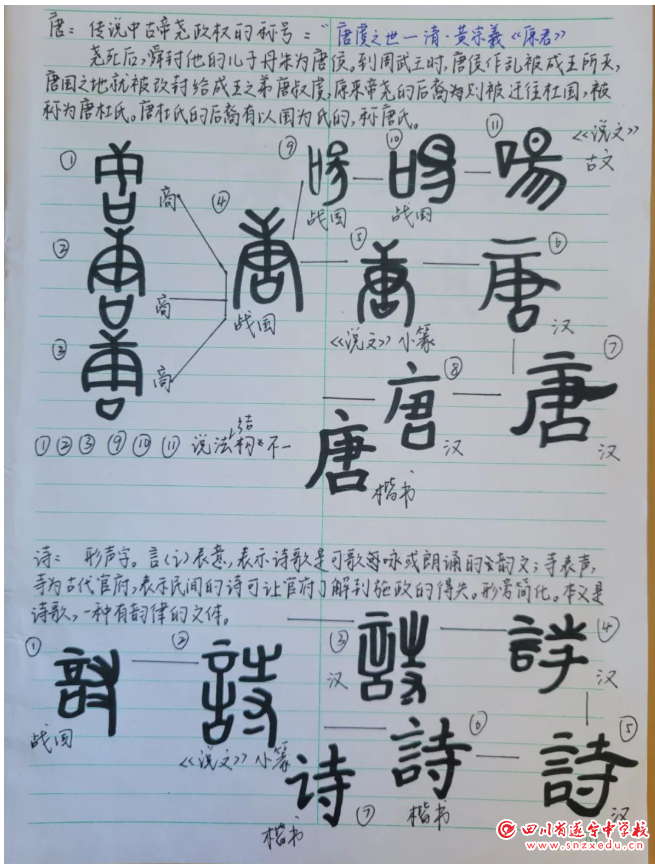 唐：传说中古帝尧政权的称号："唐虞之世一清·黄宗羲《原君》
尧死后，舜封他的儿子丹朱为唐侯，到周武王时，唐侯作乱被成王所灭，
唐国之地就被改封给成王之弟唐叔虞，原来帝尧的后裔则被迁往杜国，被
称为唐杜氏。唐杜氏的后裔有以国为氏的，称唐氏。
① 商
② 商
③ 商
④ 战国
⑨ 战国
⑩ 战国
⑪ 《说文》古文
⑤ 《说文》小篆
⑥ 唐 汉
⑦ 唐 汉
⑧ 唐 汉
唐 楷书
①②③ ⑨⑩⑪ 说法结构不一
诗： 形声字。言(讠)表意，表示诗歌是可歌咏或朗诵的韵文；寺表声，
寺为古代官府，表示民间的诗可让官府了解到施政的得失。形旁简化。本义是
诗歌，一种有韵律的文体。
① 战国
② 《说文》小篆
③ 汉
④ 汉
⑤ 詩 汉
⑥ 詩 楷书
⑦ 诗 楷书
四川省遂宁中学校
www.snzxedu.cn